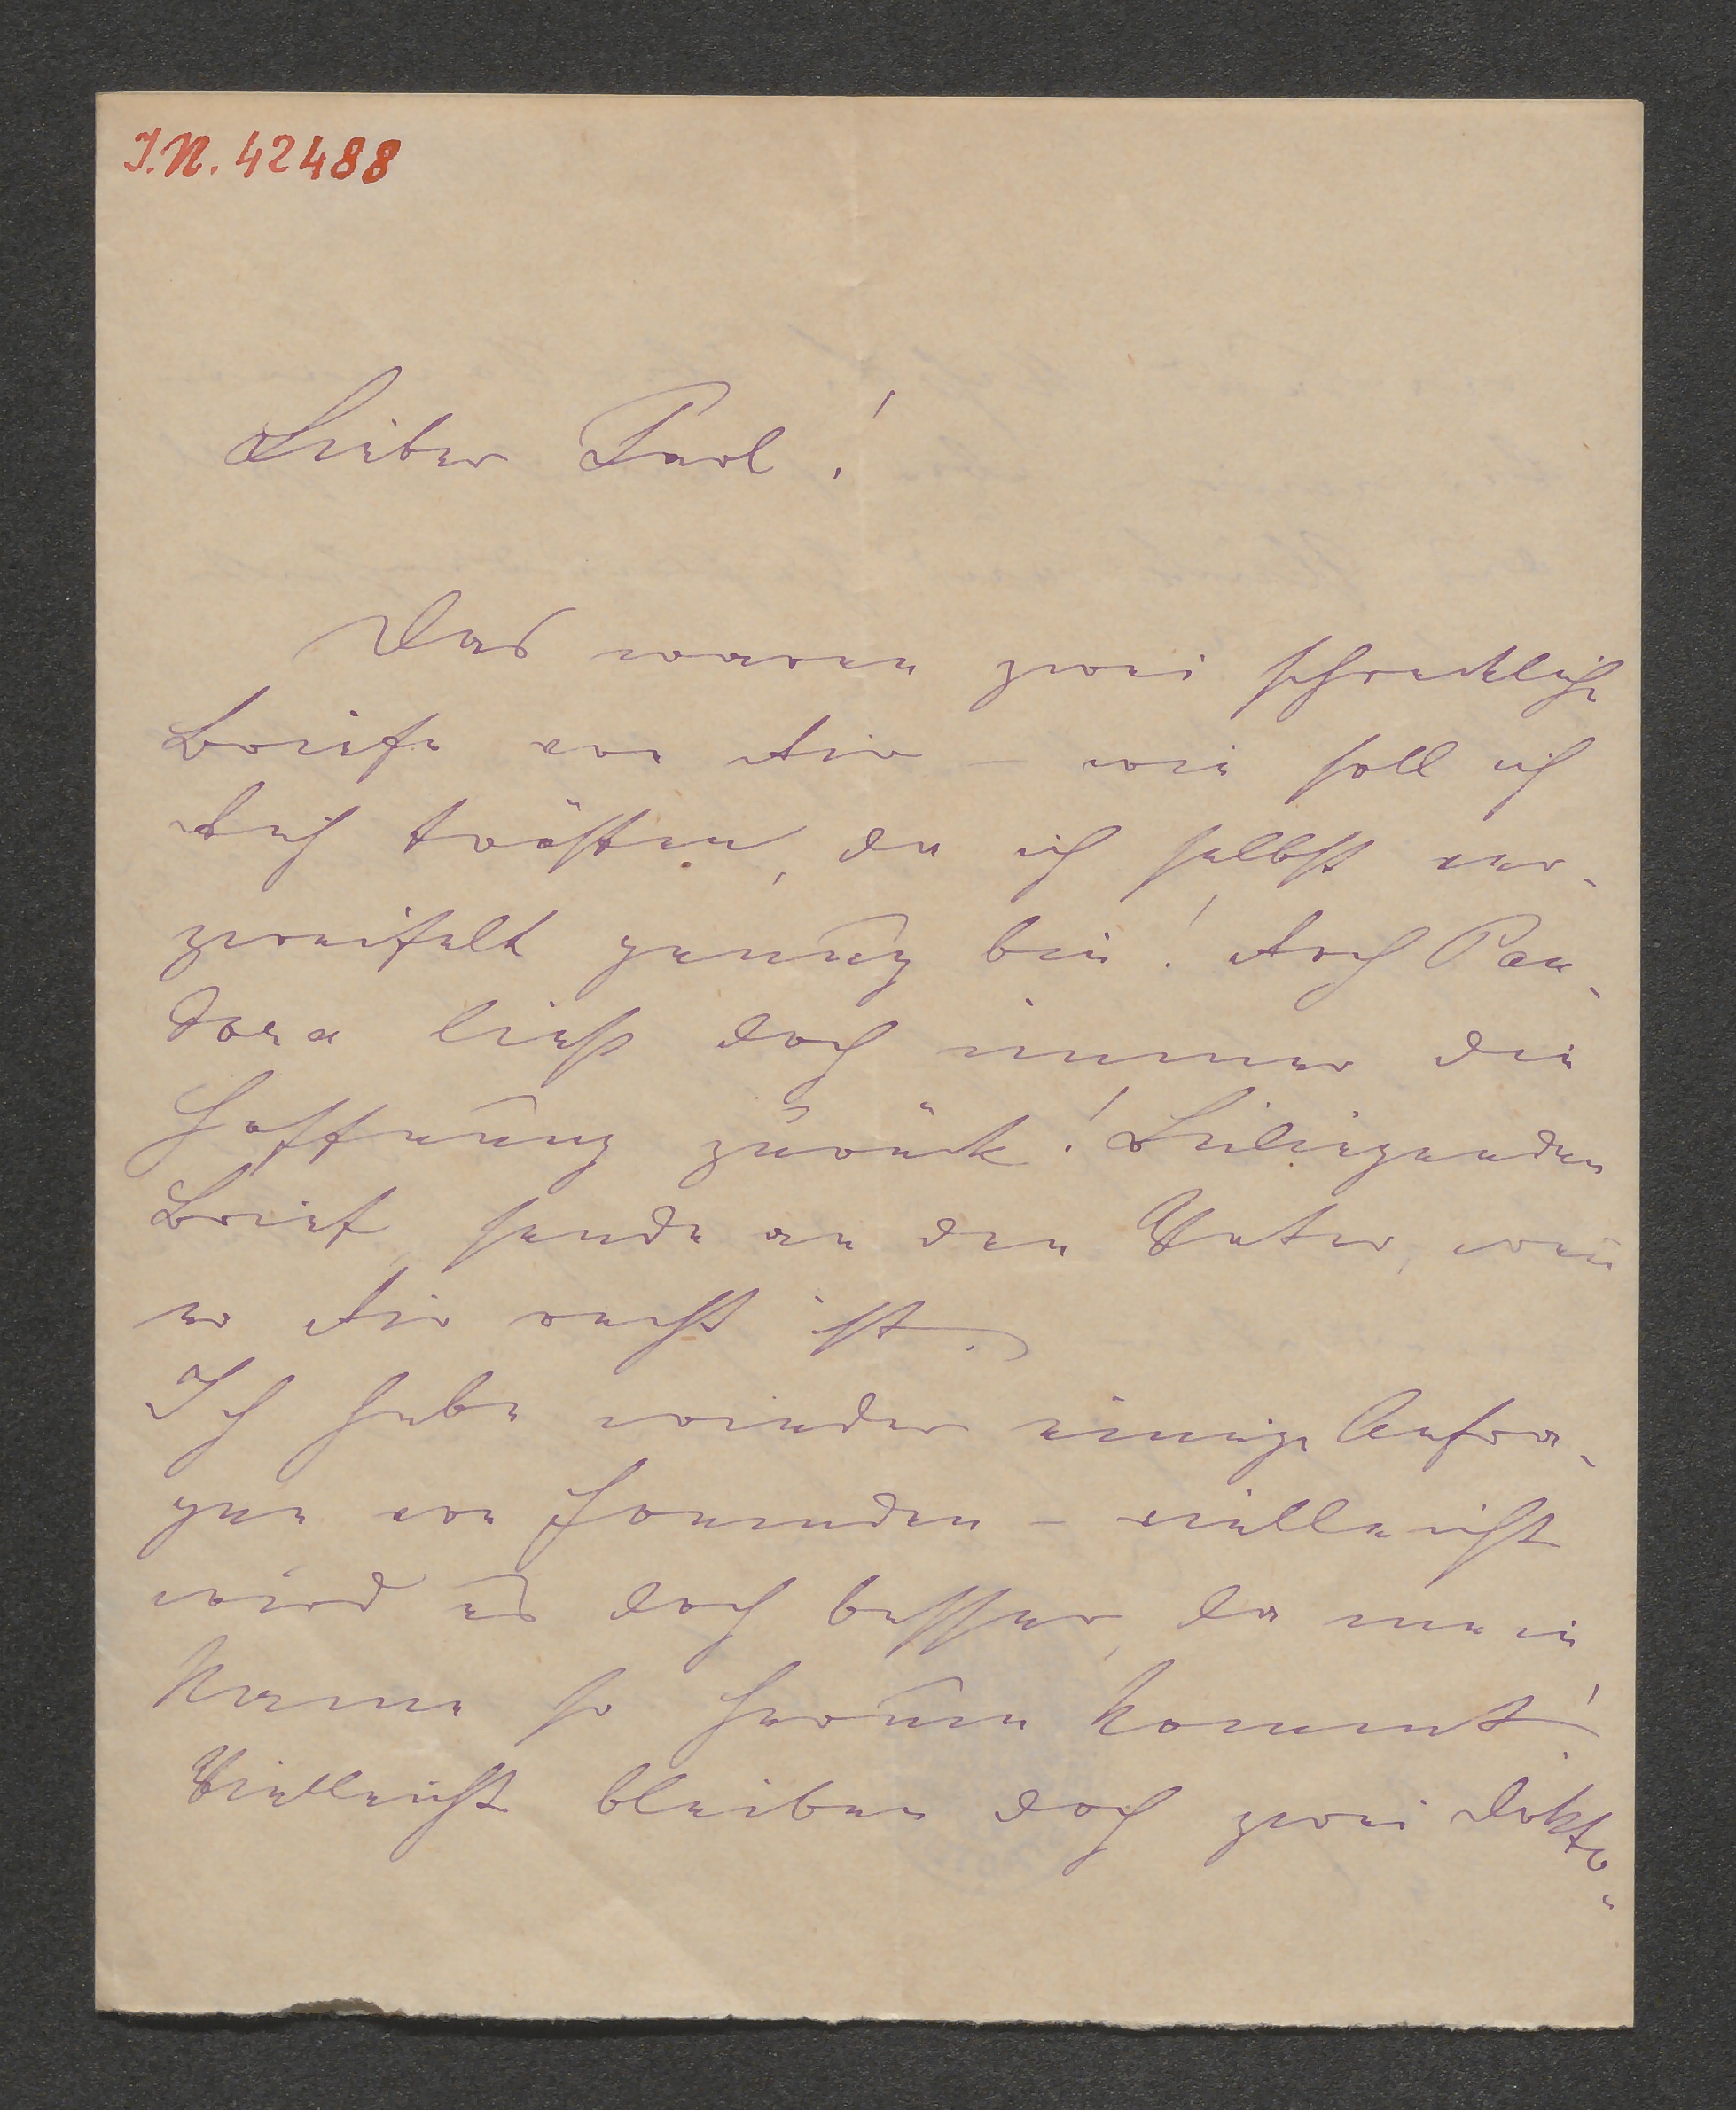 I.N. 42488
Lieber Karl!
Das waren zwei schreckliche
Briefe von Dir – wie soll ich
Dich trösten, da ich selbst ver-
zweifelt genug bin! Doch Pan-
dora ließ doch immer die
Hoffnung zurück! Beiliegenden
Brief sende an den Vater, wenn
er Dir recht ist.
Ich habe wieder einige Anfra-
gen von Fremden – vielleicht
wird es doch besser, da mein
Name so herum kommt!
Vielleicht bleiben doch zwei Dokto-